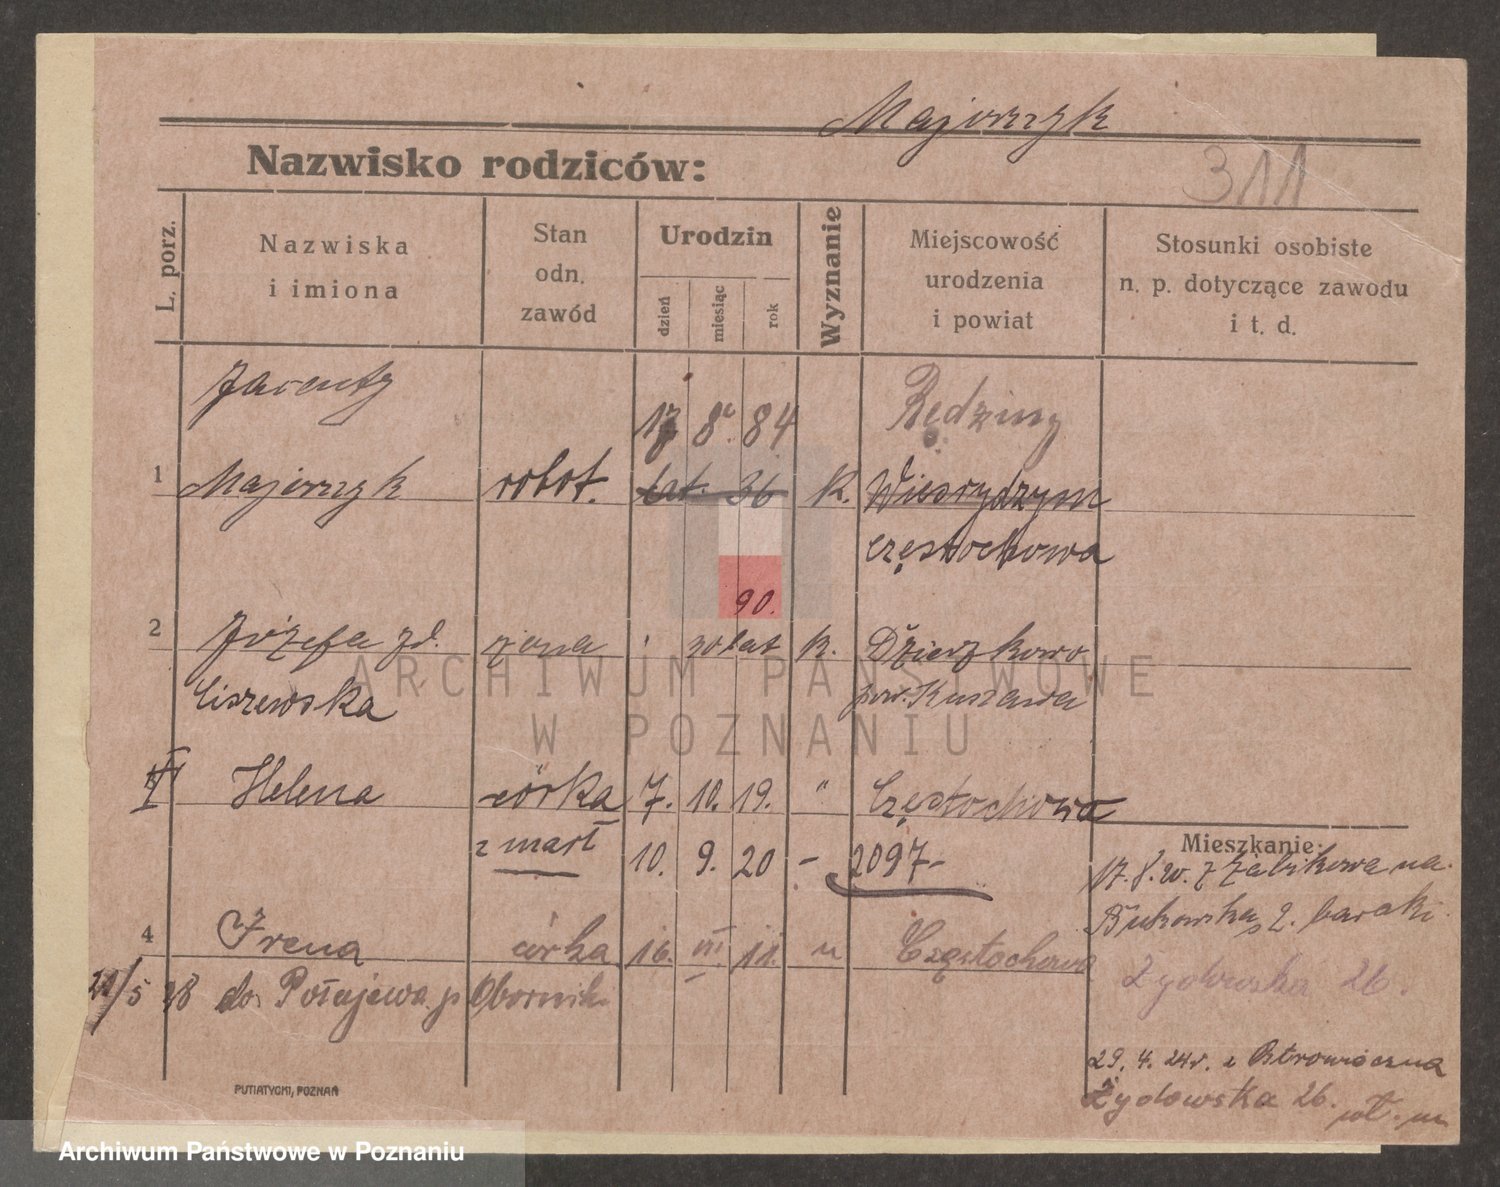 Majorczyk
Nazwisko rodziców:
311
L. porz.
Nazwiska
i imiona
Stan
odn.
zawód
Urodzin
dzień
miesiąc
rok
Wyznanie
Miejscowość
urodzenia
i powiat
Stosunki osobiste
n. p. dotyczące zawodu
i t. d.
Jacenty
17 8. 84 Rędziny
1 Majorczyk robot. lat. 36 K.
Częstochowa
90.
2 Józefa zd. żona 30 lat K.
Ciszewska
Helena córka 7. 10. 19. " Częstochowa
zmarł 10. 9. 20 - 2097-
Mieszkanie:
17. 8. 20. z Żabikowa na
Bukowska 2. baraki
4 Irena córka 16. VII 11. " Częstochowa
Żydowska 26.
21/5 28 do Połajewa p Obornik
29. 4. 24r. z Ostrowieczna
Żydowska 26.
PUTIATYCKI, POZNAŃ
ARCHIWUM PAŃSTWOWE
W POZNANIU
Archiwum Państwowe w Poznaniu